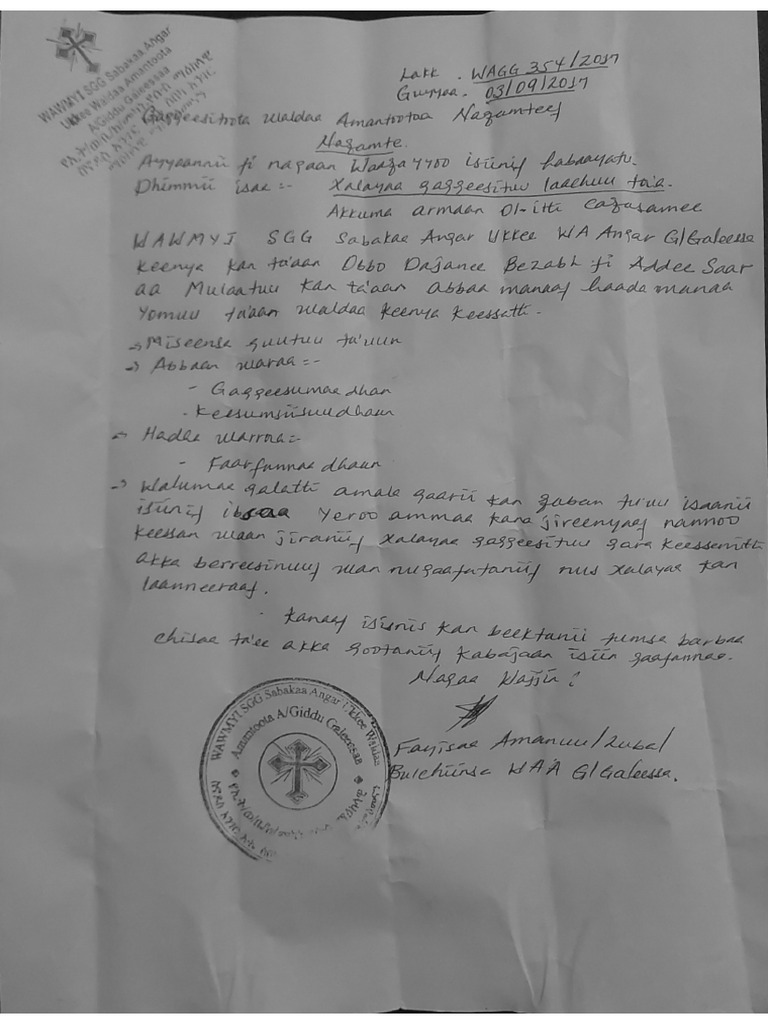 WAWMYI SGG Sabakaa Angar
Ukkee Waldaa Amantoota
A/Giddu Galeessaa
Lakk . WAGG 354/2017
Guyyaa. 03/09/2017
Gaggeesitoota waldaa Amantootaa Naqamteef
Naqamte.
Ayyaannii fi nagaan Waaqayyoo isiinif habaayatu.
Dhimmii isaa :- Xalayaa gaggeesituu laachuu ta'a.
Akkuma armaan Ol-itti caqasamee
WAWMYI SGG Sabakaa Angar Ukkee WA Angar G/Galeessa
keenya kan ta'aan Obbo Dajanee Bezabh fi Addee Saar
aa Mulaatuu kan ta'aan abbaa manaaf haada manaa
Yommu ta'aan waldaa keenya keessatti.
→ Miseensa guutuu ta'uun
→ Abbaan waraa :-
- Gaggeesumaa dhan
- Keesumsiisuudhaan
→ Hadha warraa :-
- Faarfannaa dhaan
→ Walumaa galatti amala gaarii kan qaban ta'uu isaanii
isiinif ibsaa yeroo ammaa kana jireenyaaf nannoo
keessan waan jiraniif xalayaa gaggeesituu gara keessanitti
akka barreesinuuf waan nugaafataniif nus xalayaa kan
laanneeraaf.
kanaaf isinis kan beektanii tumsa barbaa
chisaa ta'ee akka gootaniif kabajaan isiin gaafannaa.
Nagaa Wajjin !
Fayisaa Amanuu/Luba/
Bulchiinsa WAA G/Galeessa.
WAWMYI SGG Sabakaa Angar Ukkee Waldaa
Amantoota A/Giddu Galeessaa